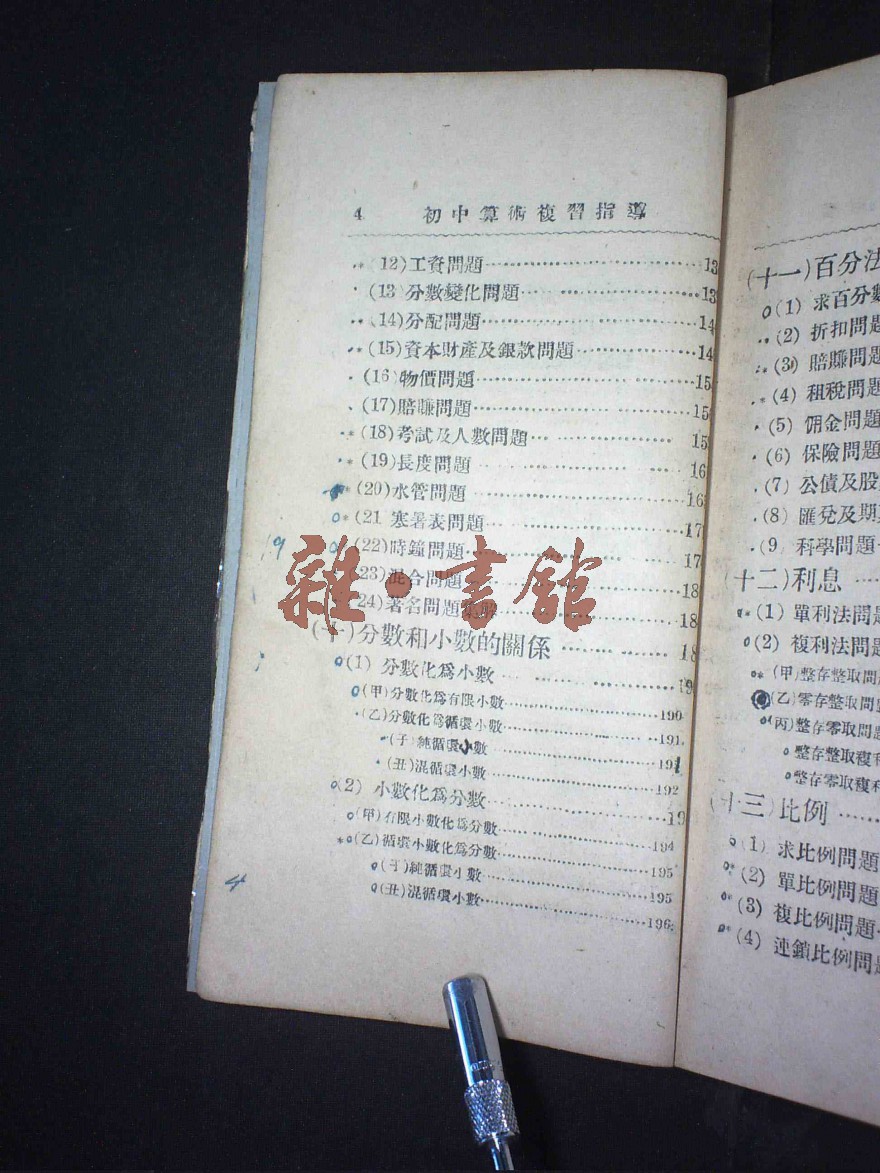 4 初中算術複習指導
(12)工資問題……13
(13)分數變化問題……13
(14)分配問題……14
(15)資本財產及銀款問題……14
(16)物價問題……15
(17)賠賺問題……15
(18)考試及人數問題……15
(19)長度問題……16
(20)水管問題……16
(21 寒暑表問題……17
(22)時鐘問題……17
(23)混合問題……18
(24)著名問題……18
(十)分數和小數的關係……18
(1) 分數化爲小數……19
(甲)分數化爲有限小數……190
(乙)分數化爲循環小數……191
(子)純循環小數……191
(丑)混循環小數……192
(2) 小數化爲分數……19
(甲)有限小數化爲分數……194
(乙)循環小數化爲分數……195
(子)純循環小數……195
(丑)混循環小數……196
9
4
雜·書館
(十一)百分法
(1) 求百分數
(2) 折扣問題
(3) 賠賺問題
(4) 租稅問題
(5) 佣金問題
(6) 保險問題
(7) 公債及股
(8) 匯兌及期
(9 科學問題
(十二)利息……
(1) 單利法問題
(2) 複利法問題
(甲)整存整取問
(乙)零存整取問
(丙)整存零取問題
整存整取複利
整存零取複利
(十三)比例……
(1) 求比例問題
(2) 單比例問題
(3) 複比例問題
(4) 連鎖比例問題